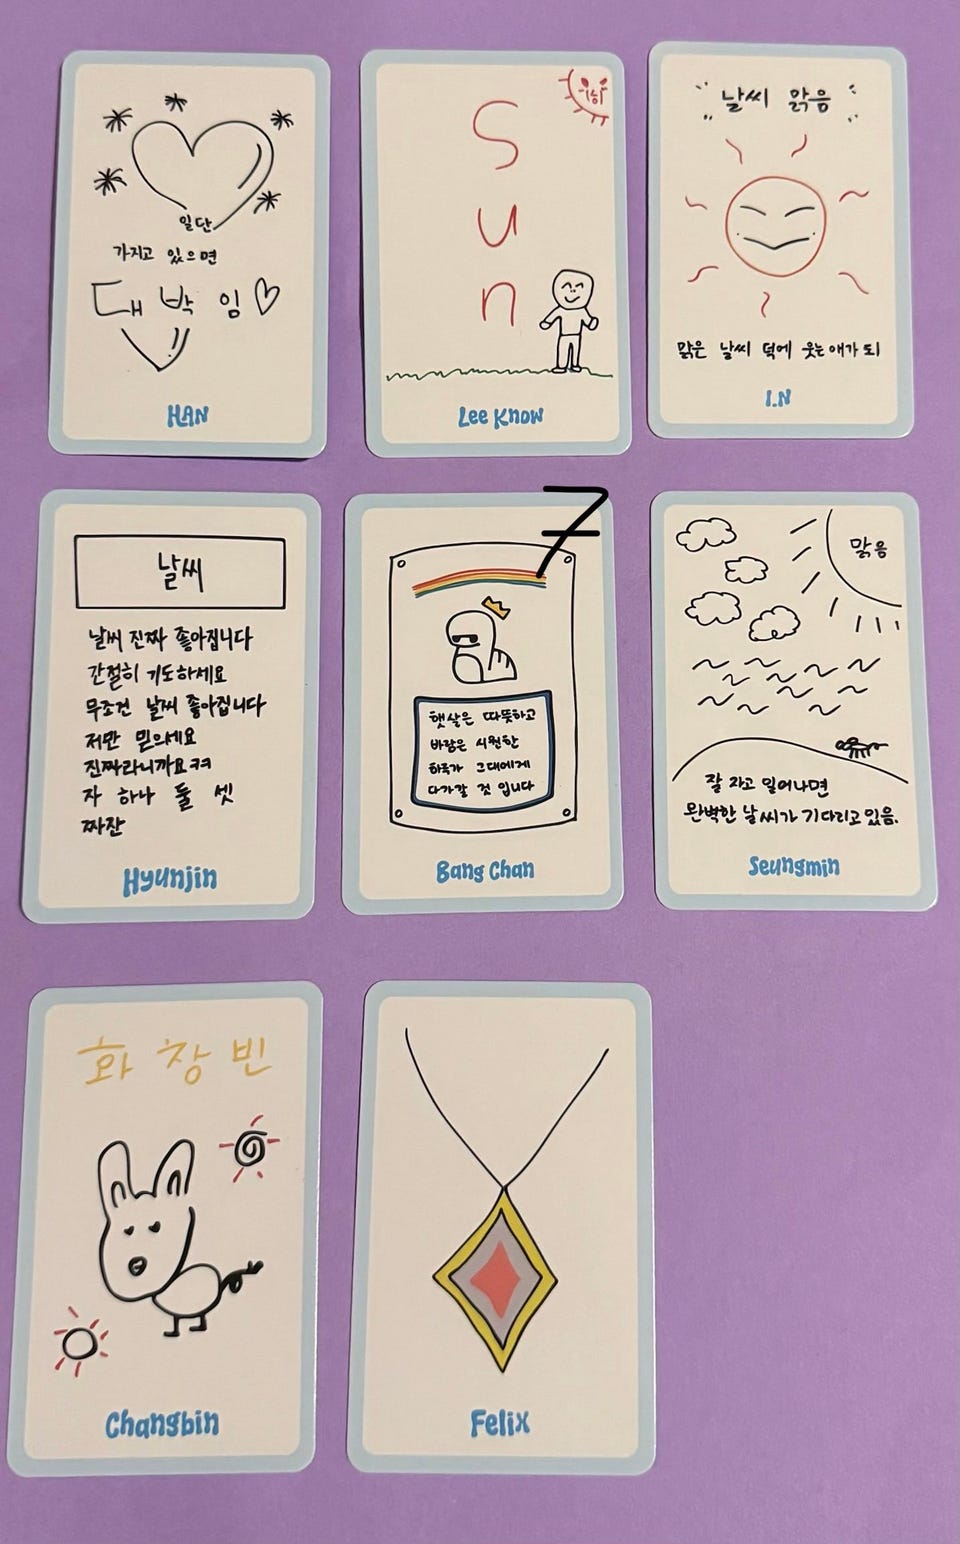 일단
가지고 있으면
대박임
HAN
해
Sun
Lee Know
날씨 맑음
맑은 날씨 덕에 웃는 애가 되
I.N
날씨
날씨 진짜 좋아집니다
간절히 기도하세요
무조건 날씨 좋아집니다
저만 믿으세요
진짜라니까요ㅋㅋ
자 하나 둘 셋
짜잔
Hyunjin
7
햇살은 따뜻하고
바람은 시원한
하루가 그대에게
다가갈 것 입니다
Bang Chan
맑음
잘 자고 일어나면
완벽한 날씨가 기다리고 있음.
Seungmin
화창빈
Changbin
Felix